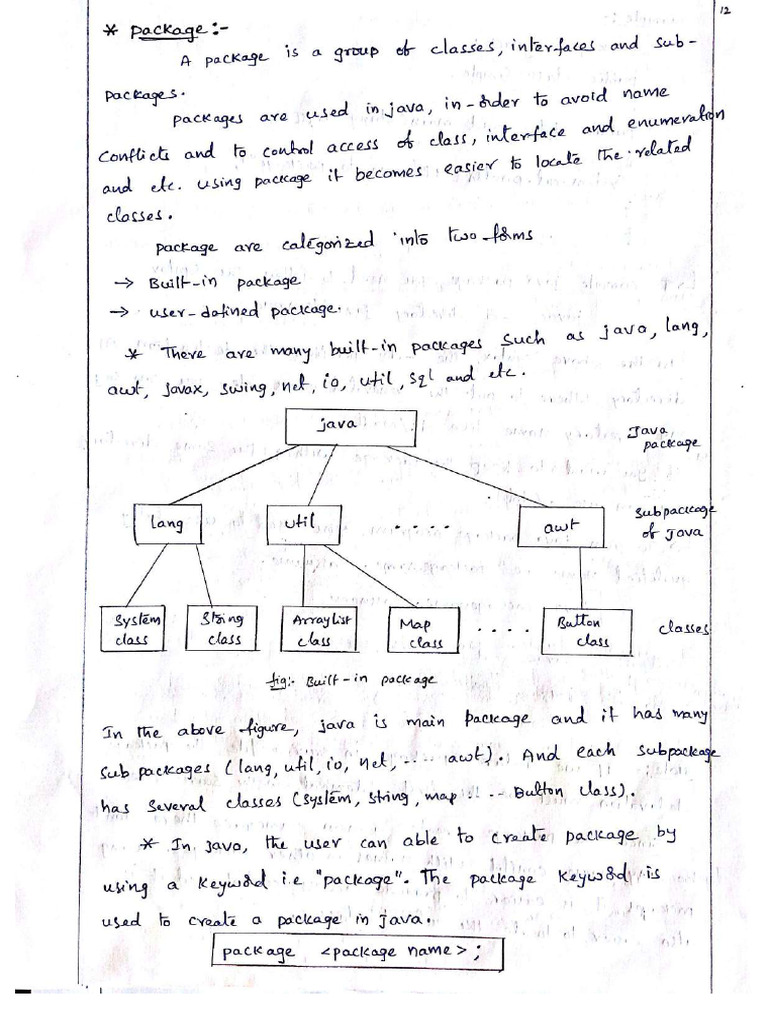 12
* package:-
A package is a group of classes, interfaces and sub-
packages.
packages are used in java, in-order to avoid name
conflicts and to control access of class, interface and enumeration
and etc. using package it becomes easier to locate the related
classes.
package are categorized into two forms
→ Built-in package
→ user-defined package.
* There are many built-in packages such as java, lang,
awt, javax, swing, net, io, util, sql and etc.
java
Java
package
lang
util
....
awt
subpackage
of java
System
class
String
class
ArrayList
class
Map
class
....
Button
class
classes
fig:- Built-in package
In the above figure, java is main package and it has many
sub packages (lang, util, io, net, .... awt). And each subpackage
has several classes (system, string, map .... Button class).
* In java, the user can able to create package by
using a keyword i.e "package". The package keyword is
used to create a package in java.
package <package name>;